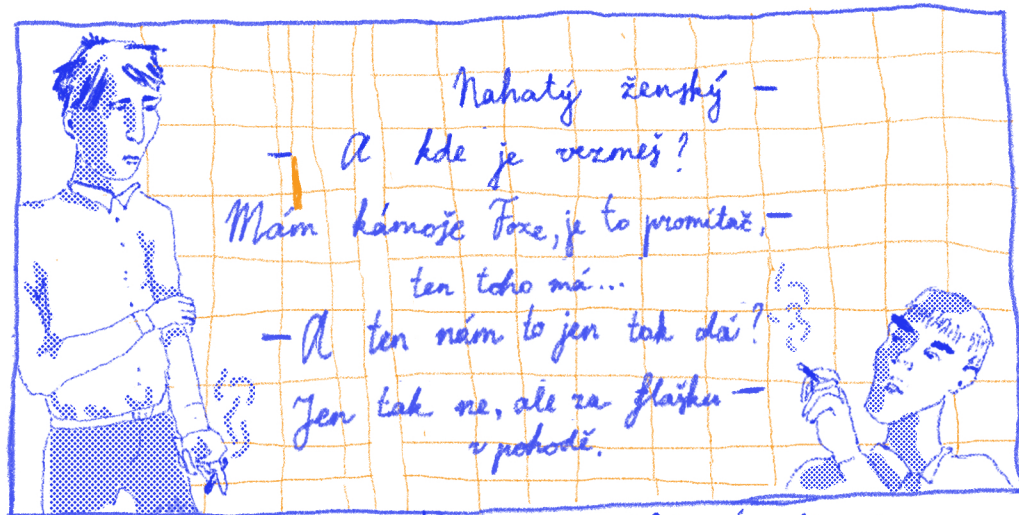 Nahatý ženský —
— A kde je vezmeš?
Mám kámoše Foxe, je to promítač, —
ten toho má...
— A ten nám to jen tak dá?
Jen tak ne, ale za flašku —
v pohodě.